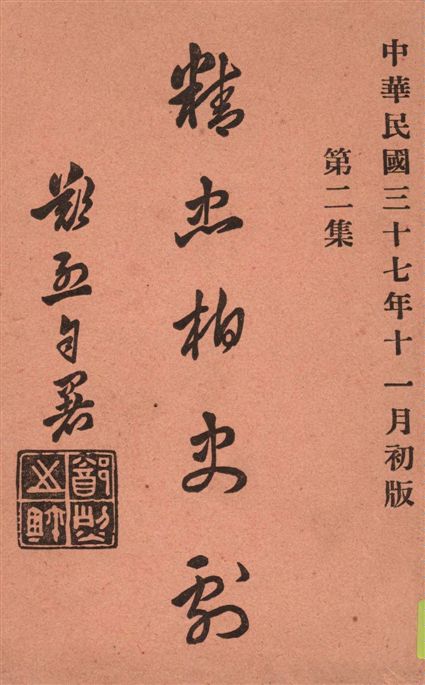 中華民國三十七年十一月初版
第二集
精忠柏史劇
鄭烈自署